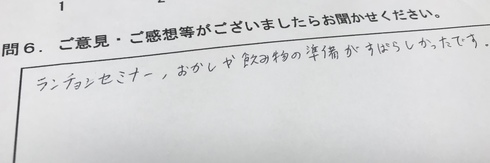 1
問６．ご意見・ご感想等がございましたらお聞かせください。
ランチョンセミナー，おかしや飲み物の準備がすばらしかったです．